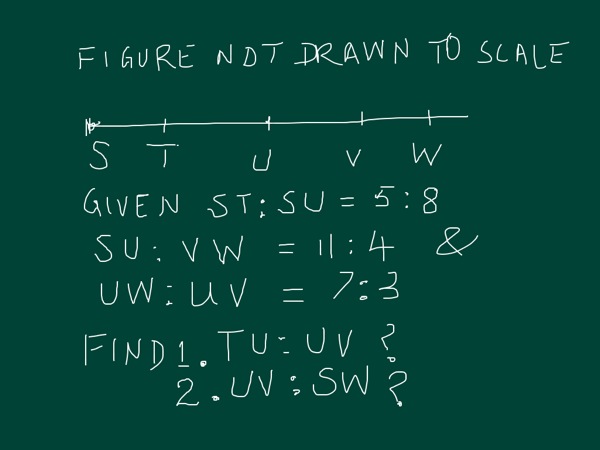 FIGURE NOT DRAWN TO SCALE
S T U V W
GIVEN ST:SU = 5:8
SU:VW = 11:4 &
UW:UV = 7:3
FIND 1. TU:UV ?
2. UV:SW ?